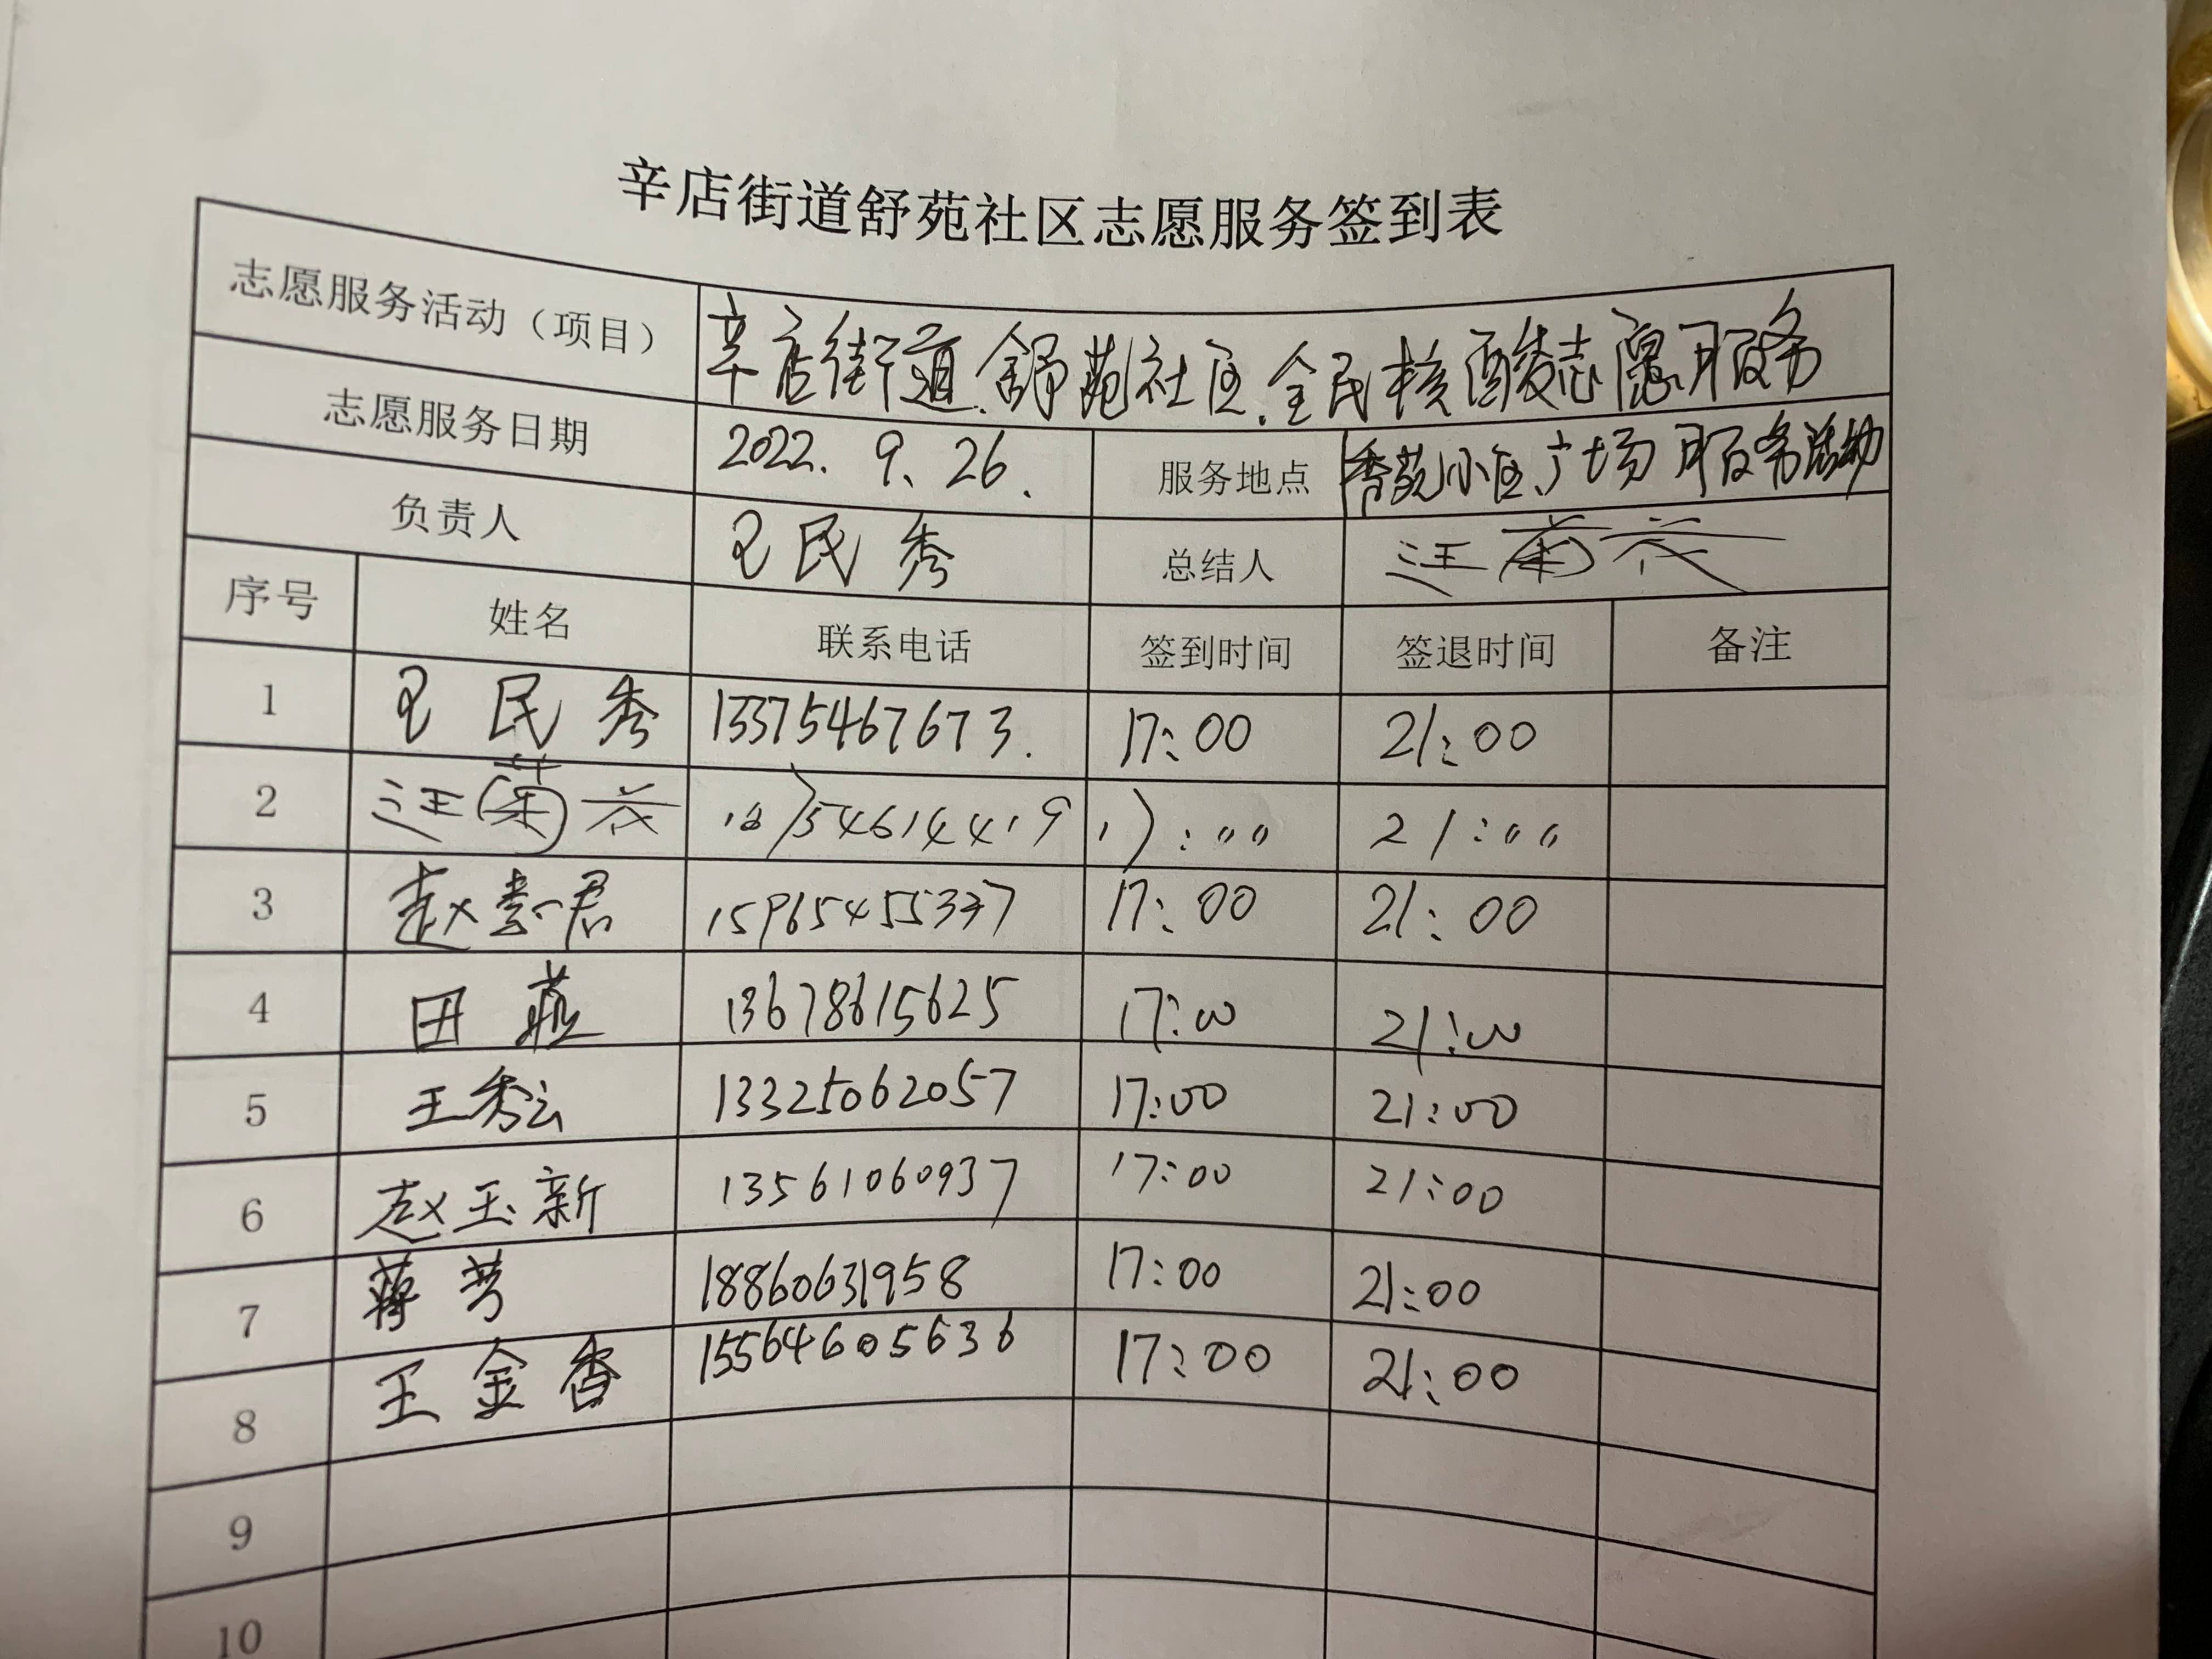 辛店街道舒苑社区志愿服务签到表
志愿服务活动（项目） 辛店街道.舒苑社区.全民核酸志愿服务
志愿服务日期 2022. 9. 26. 服务地点 秀苑小区广场服务活动
负责人 王民秀 总结人 汪菊
序号 姓名 联系电话 签到时间 签退时间 备注
1 王民秀 13375467673. 17:00 21:00
2 汪菊 17:00 21:00
3 赵 君 17:00 21:00
4 田 13678615625 17:00 21:00
5 王秀云 13325062057 17:00 21:00
6 赵玉新 13561060937 17:00 21:00
7 蒋芳 18860631958 17:00 21:00
8 王金香 15564605636 17:00 21:00
9
10